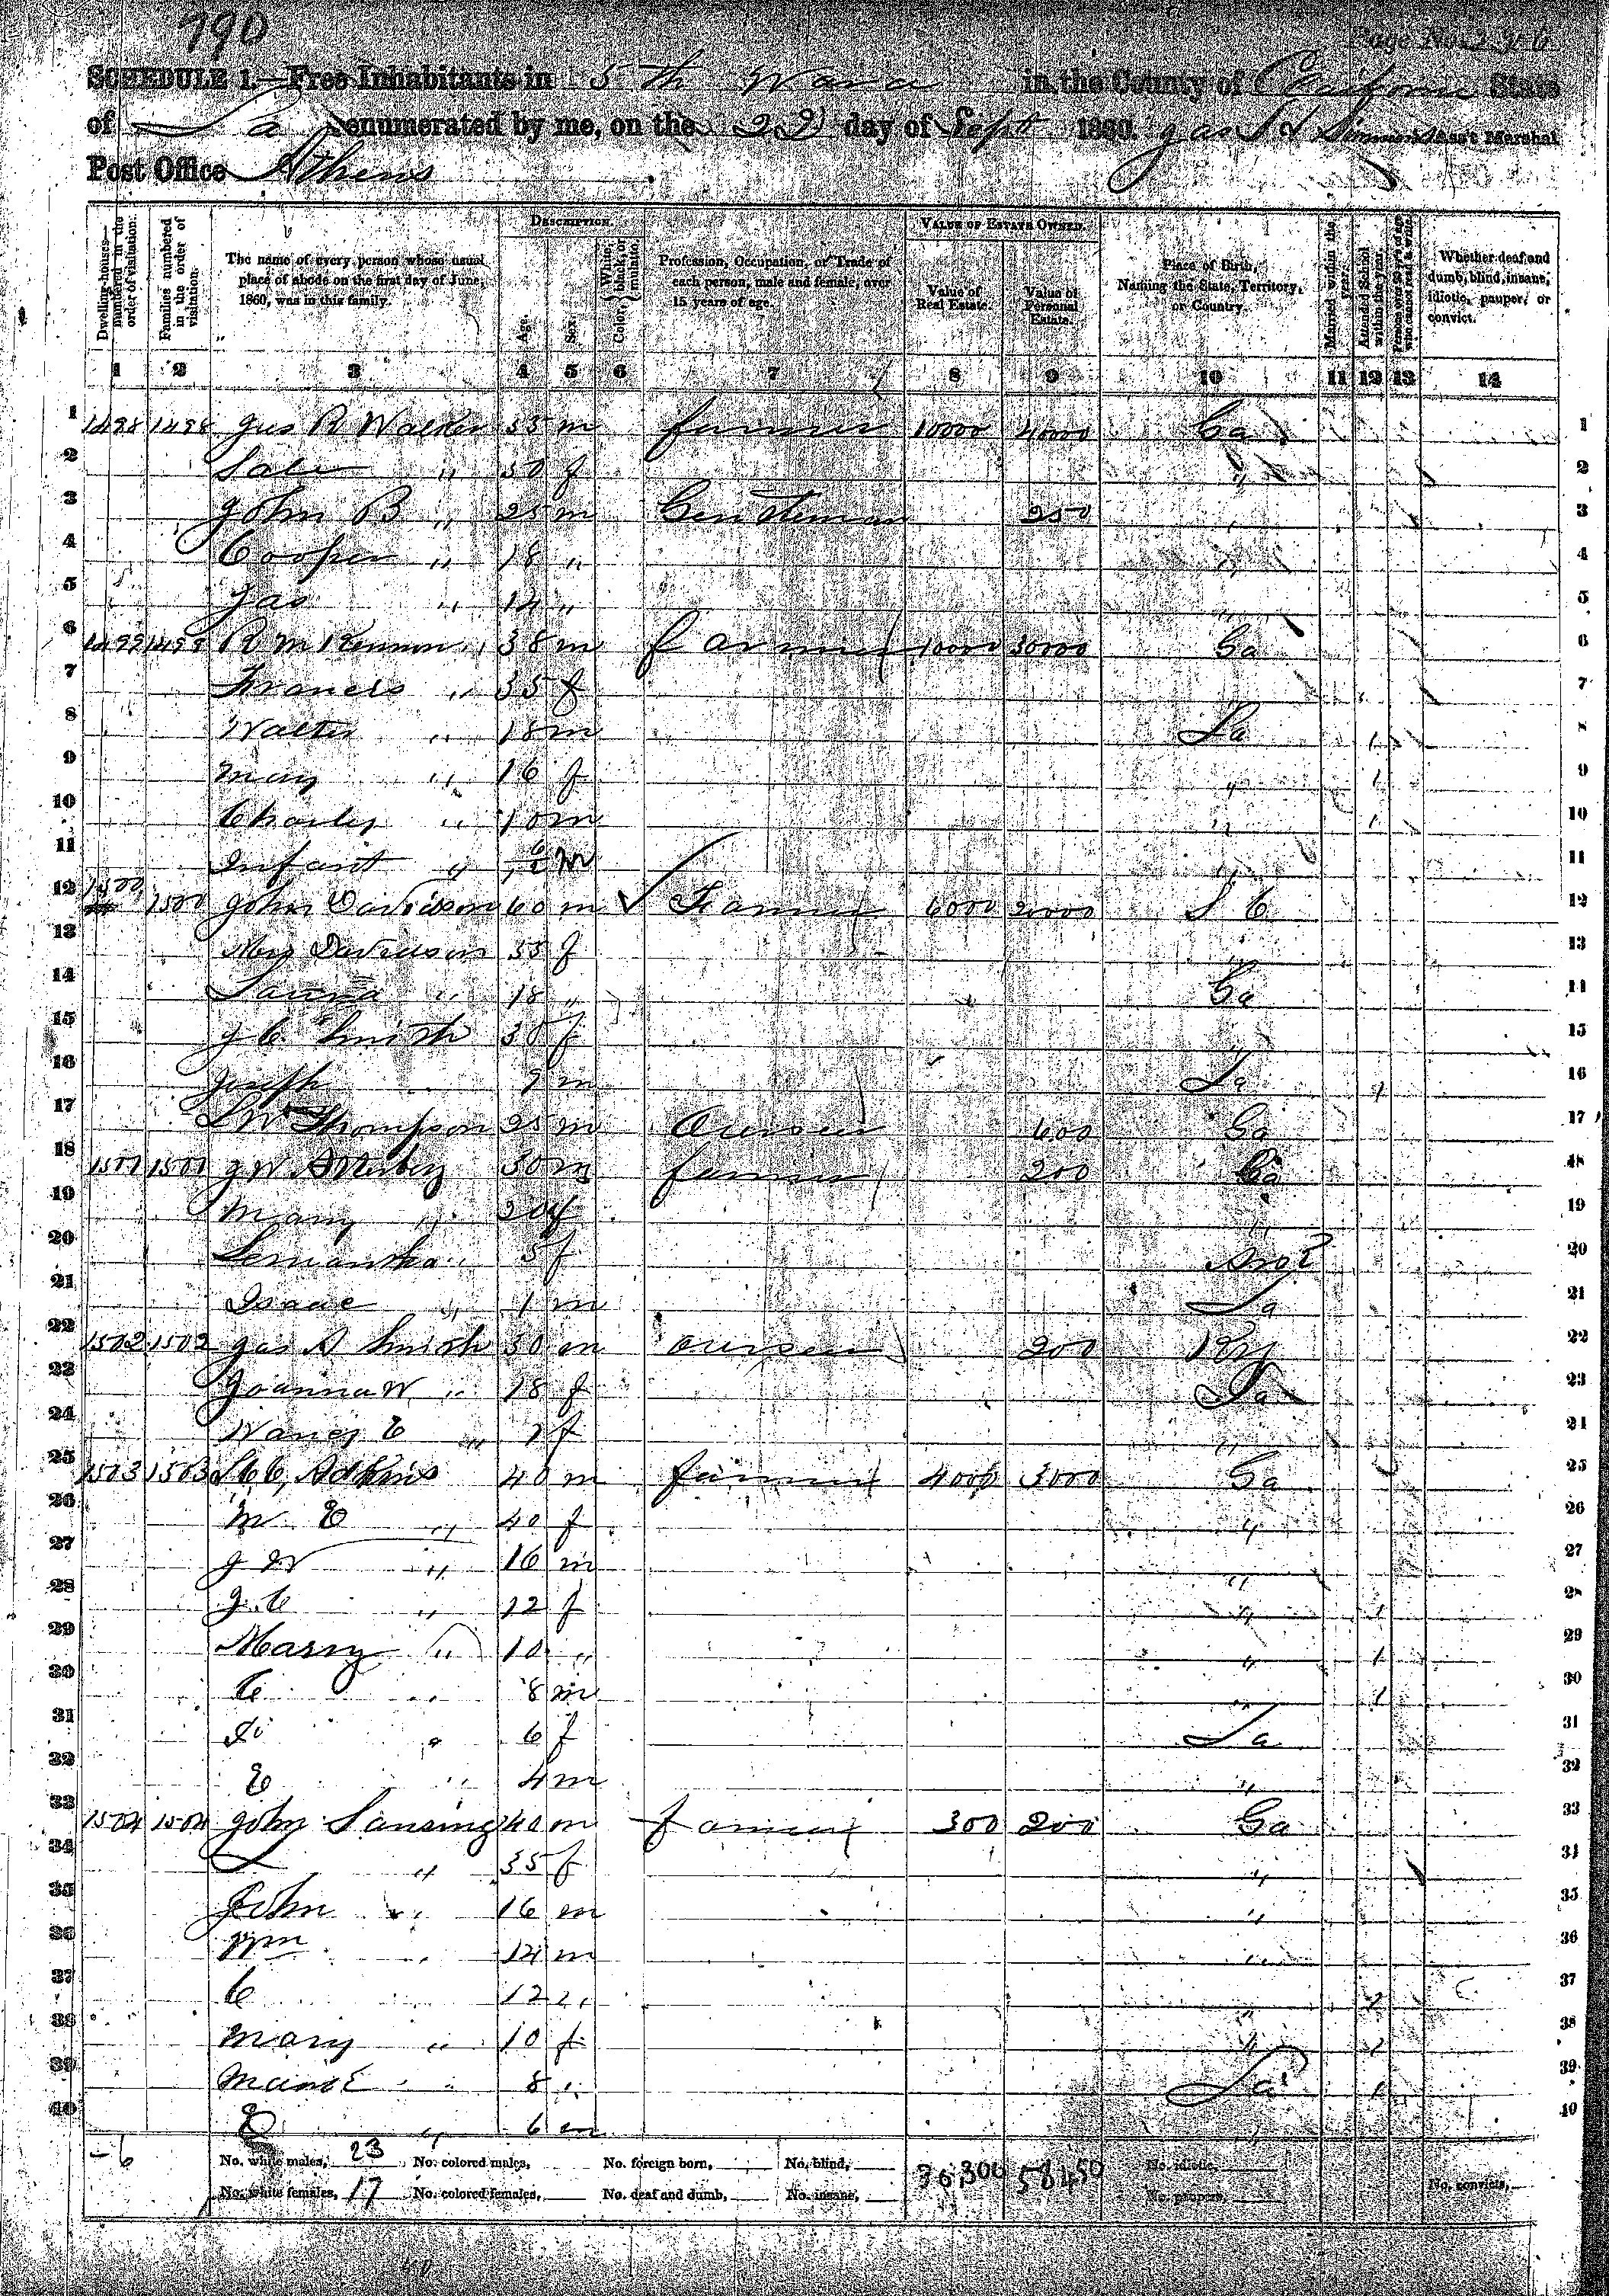 790
Page No. 226
SCHEDULE 1.—Free Inhabitants in 5th Ward in the County of State
of La enumerated by me, on the 22 day of Sept 1860. Jas Simmons Ass't Marshal
Post Office Athens
Dwelling-houses—numbered in the order of visitation.
Families numbered in the order of visitation.
The name of every person whose usual place of abode on the first day of June, 1860, was in this family.
DESCRIPTION.
Age.
Sex.
Color, White, black, or mulatto.
Profession, Occupation, or Trade of each person, male and female, over 15 years of age.
VALUE OF ESTATE OWNED.
Value of Real Estate.
Value of Personal Estate.
Place of Birth, Naming the State, Territory, or Country.
Married within the year.
Attended School within the year.
Persons over 20 y'rs of age who cannot read & write.
Whether deaf and dumb, blind, insane, idiotic, pauper, or convict.
1 2 3 4 5 6 7 8 9 10 11 12 13 14
1 1498 1498 Jas R Walker 55 m farmer 10000 40000 Ga 1
2 " 50 f " 2
3 John B " 25 m Gentleman 250 " 3
4 Cooper " 18 " " 4
5 Jas " 14 " " 5
6 1499 1499 R M Kennon " 38 m farmer 10000 30000 Ga 6
7 Francis " 35 f 7
8 Walter " 18 m La 1 8
9 Mary " 16 f " 1 9
10 Charley " 10 m " 1 10
11 Infant " m " 11
12 1500 1500 John Davidson 60 m Farmer 6000 20000 S C 12
13 Mrs Davidson 55 f " 13
14 18 " Ga 14
15 J C Smith 30 f " 15
16 Joseph 9 m La 1 16
17 S W Thompson 25 m Overseer 600 Ga 17
18 1501 1501 J W 30 m farmer 200 Ga 18
19 Mary " 20 f " 19
20 Semantha " 5 f 20
21 Isaac " 1 m La 21
22 1502 1502 Jas A Smith 30 m overseer 200 Ky 22
23 Joanna W " 18 f La 23
24 Nancy E " f " 24
25 1503 1503 Adkins 40 m farmer 4000 3000 Ga 25
26 M E " 40 f " 26
27 J W " 16 m " 27
28 J. C " 12 f " 1 28
29 Marry " 10 " " 1 29
30 C " 8 m " 1 30
31 " 6 f La 31
32 E " 4 m " 32
33 1504 1504 John Lansing 40 m farmer 300 200 Ga 33
34 L " 35 f " 34
35 John " 16 m " 35
36 Wm " 14 m " 36
37 C 12 " " 1 37
38 Mary " 10 f " 1 38
39 " 8 " La 1 39
40 E " 6 m " 40
– 6 No. white males, 23 No. colored males, No. foreign born, No. blind, 30,300 No. idiotic,
No. white females, 17 No. colored females, No. deaf and dumb, No. insane, No. paupers, No. convicts,